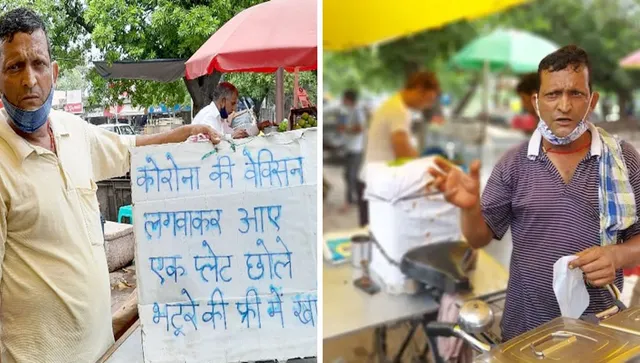 कोरोना की वेक्सिन
लगवाकर आए
एक प्लेट छोले
भटूरे की फ्री में खा